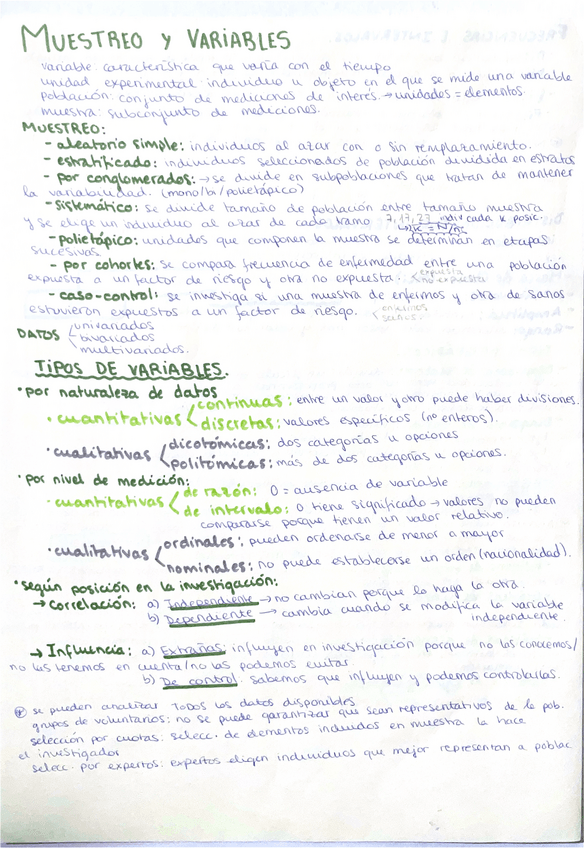 MUESTREO Y VARIABLES
variable: característica que varía con el tiempo
unidad experimental: individuo u objeto en el que se mide una variable
población: conjunto de mediciones de interés. → unidades = elementos
muestra: subconjunto de mediciones.
MUESTREO:
- aleatorio simple: individuos al azar con o sin remplazamiento.
- estratificado: individuos seleccionados de población dividida en estratos
- por conglomerados: → se divide en subpoblaciones que tratan de mantener
la variabilidad. (mono/bi/polietápico)
- sistemático: se divide tamaño de población entre tamaño muestra
y se elige un individuo al azar de cada tramo 7, 17, 27 indiv cada k posic.
k = N/n
- polietápico: unidades que componen la muestra se determinan en etapas
sucesivas
- por cohortes: se compara frecuencia de enfermedad entre una población
expuesta a un factor de riesgo y otra no expuesta. < expuesta
no expuesta
- caso-control: se investiga si una muestra de enfermos y otra de sanos
estuvieron expuestos a un factor de riesgo. < enfermos
sanos.
DATOS < univariados
bivariados
multivariados.
TIPOS DE VARIABLES.
• por naturaleza de datos
• cuantitativas < continuas: entre un valor y otro puede haber divisiones.
discretas: valores específicos (nº enteros).
• cualitativas < dicotómicas: dos categorías u opciones
politómicas: más de dos categorías u opciones.
• por nivel de medición:
• cuantitativas < de razón: 0 = ausencia de variable
de intervalo: 0 tiene significado → valores no pueden
compararse porque tienen un valor relativo.
• cualitativas < ordinales: pueden ordenarse de menor a mayor
nominales: no puede establecerse un orden (nacionalidad).
• según posición en la investigación:
→ correlación: a) Independiente → no cambian porque lo haga la otra.
b) Dependiente → cambia cuando se modifica la variable
independiente.
→ Influencia: a) Extrañas: influyen en investigación porque no las conocemos/
no las tenemos en cuenta/no las podemos evitar.
b) De control: sabemos que influyen y podemos controlarlas.
se pueden analizar TODOS los datos disponibles
grupos de voluntarios: no se puede garantizar que sean representativos de la pob.
selección por cuotas: selecc. de elementos incluidos en muestra la hace
el investigador
selecc. por expertos: expertos eligen individuos que mejor representan a poblac.